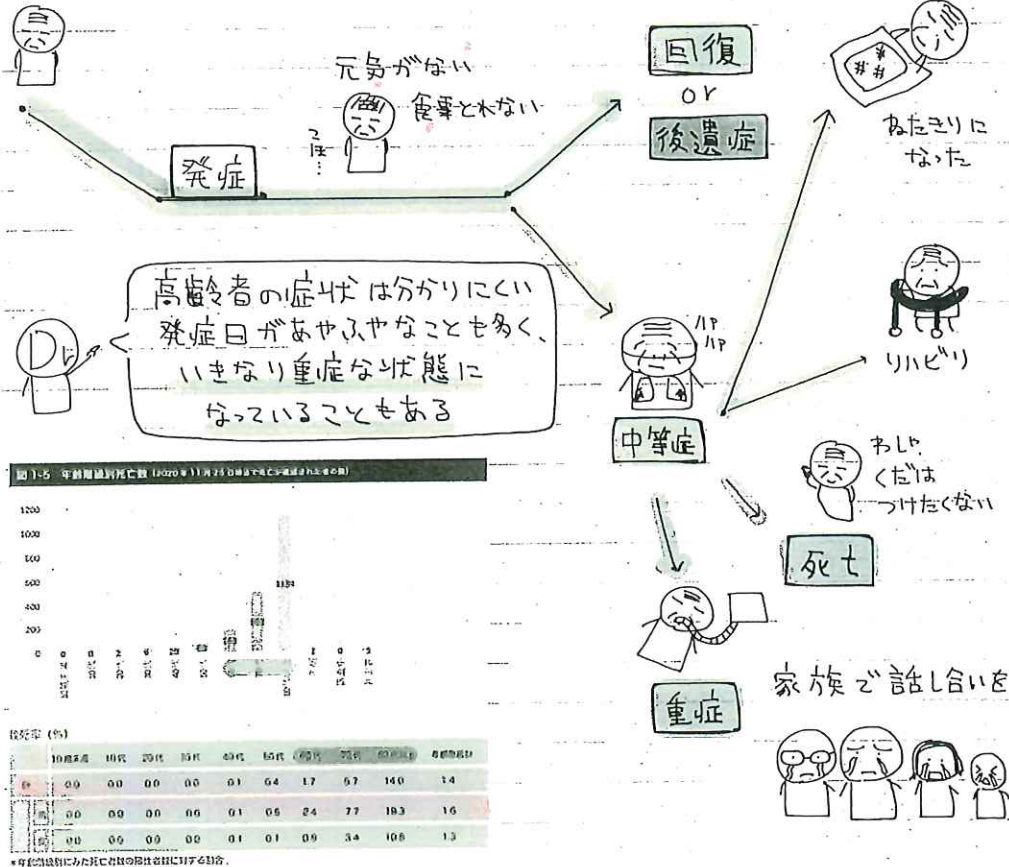 元気がない
食事とれない
こほ…
発症
回復
or
後遺症
ねたきりに
なった
リハビリ
Dr
高齢者の症状は分かりにくい
発症日があやふやなことも多く、
いきなり重症な状態に
なっていることもある
ハァ
ハァ
中等症
わしゃ
くだは
つけたくない
死亡
重症
家族で話し合いを
図1-5 年齢階級別死亡数
1200
1000
800
600
400
200
0
1134
(%)
10歳未満 10代 20代 30代 40代 50代 60代 70代
計 0.0 0.0 0.0 0.0 0.1 0.4 1.7 5.7 14.0 1.4
男 0.0 0.0 0.0 0.0 0.1 0.6 2.4 7.7 18.3 1.6
女 0.0 0.0 0.0 0.0 0.1 0.1 0.9 3.4 10.8 1.3
*年齢階級別にみた死亡者数の陽性者数に対する割合。